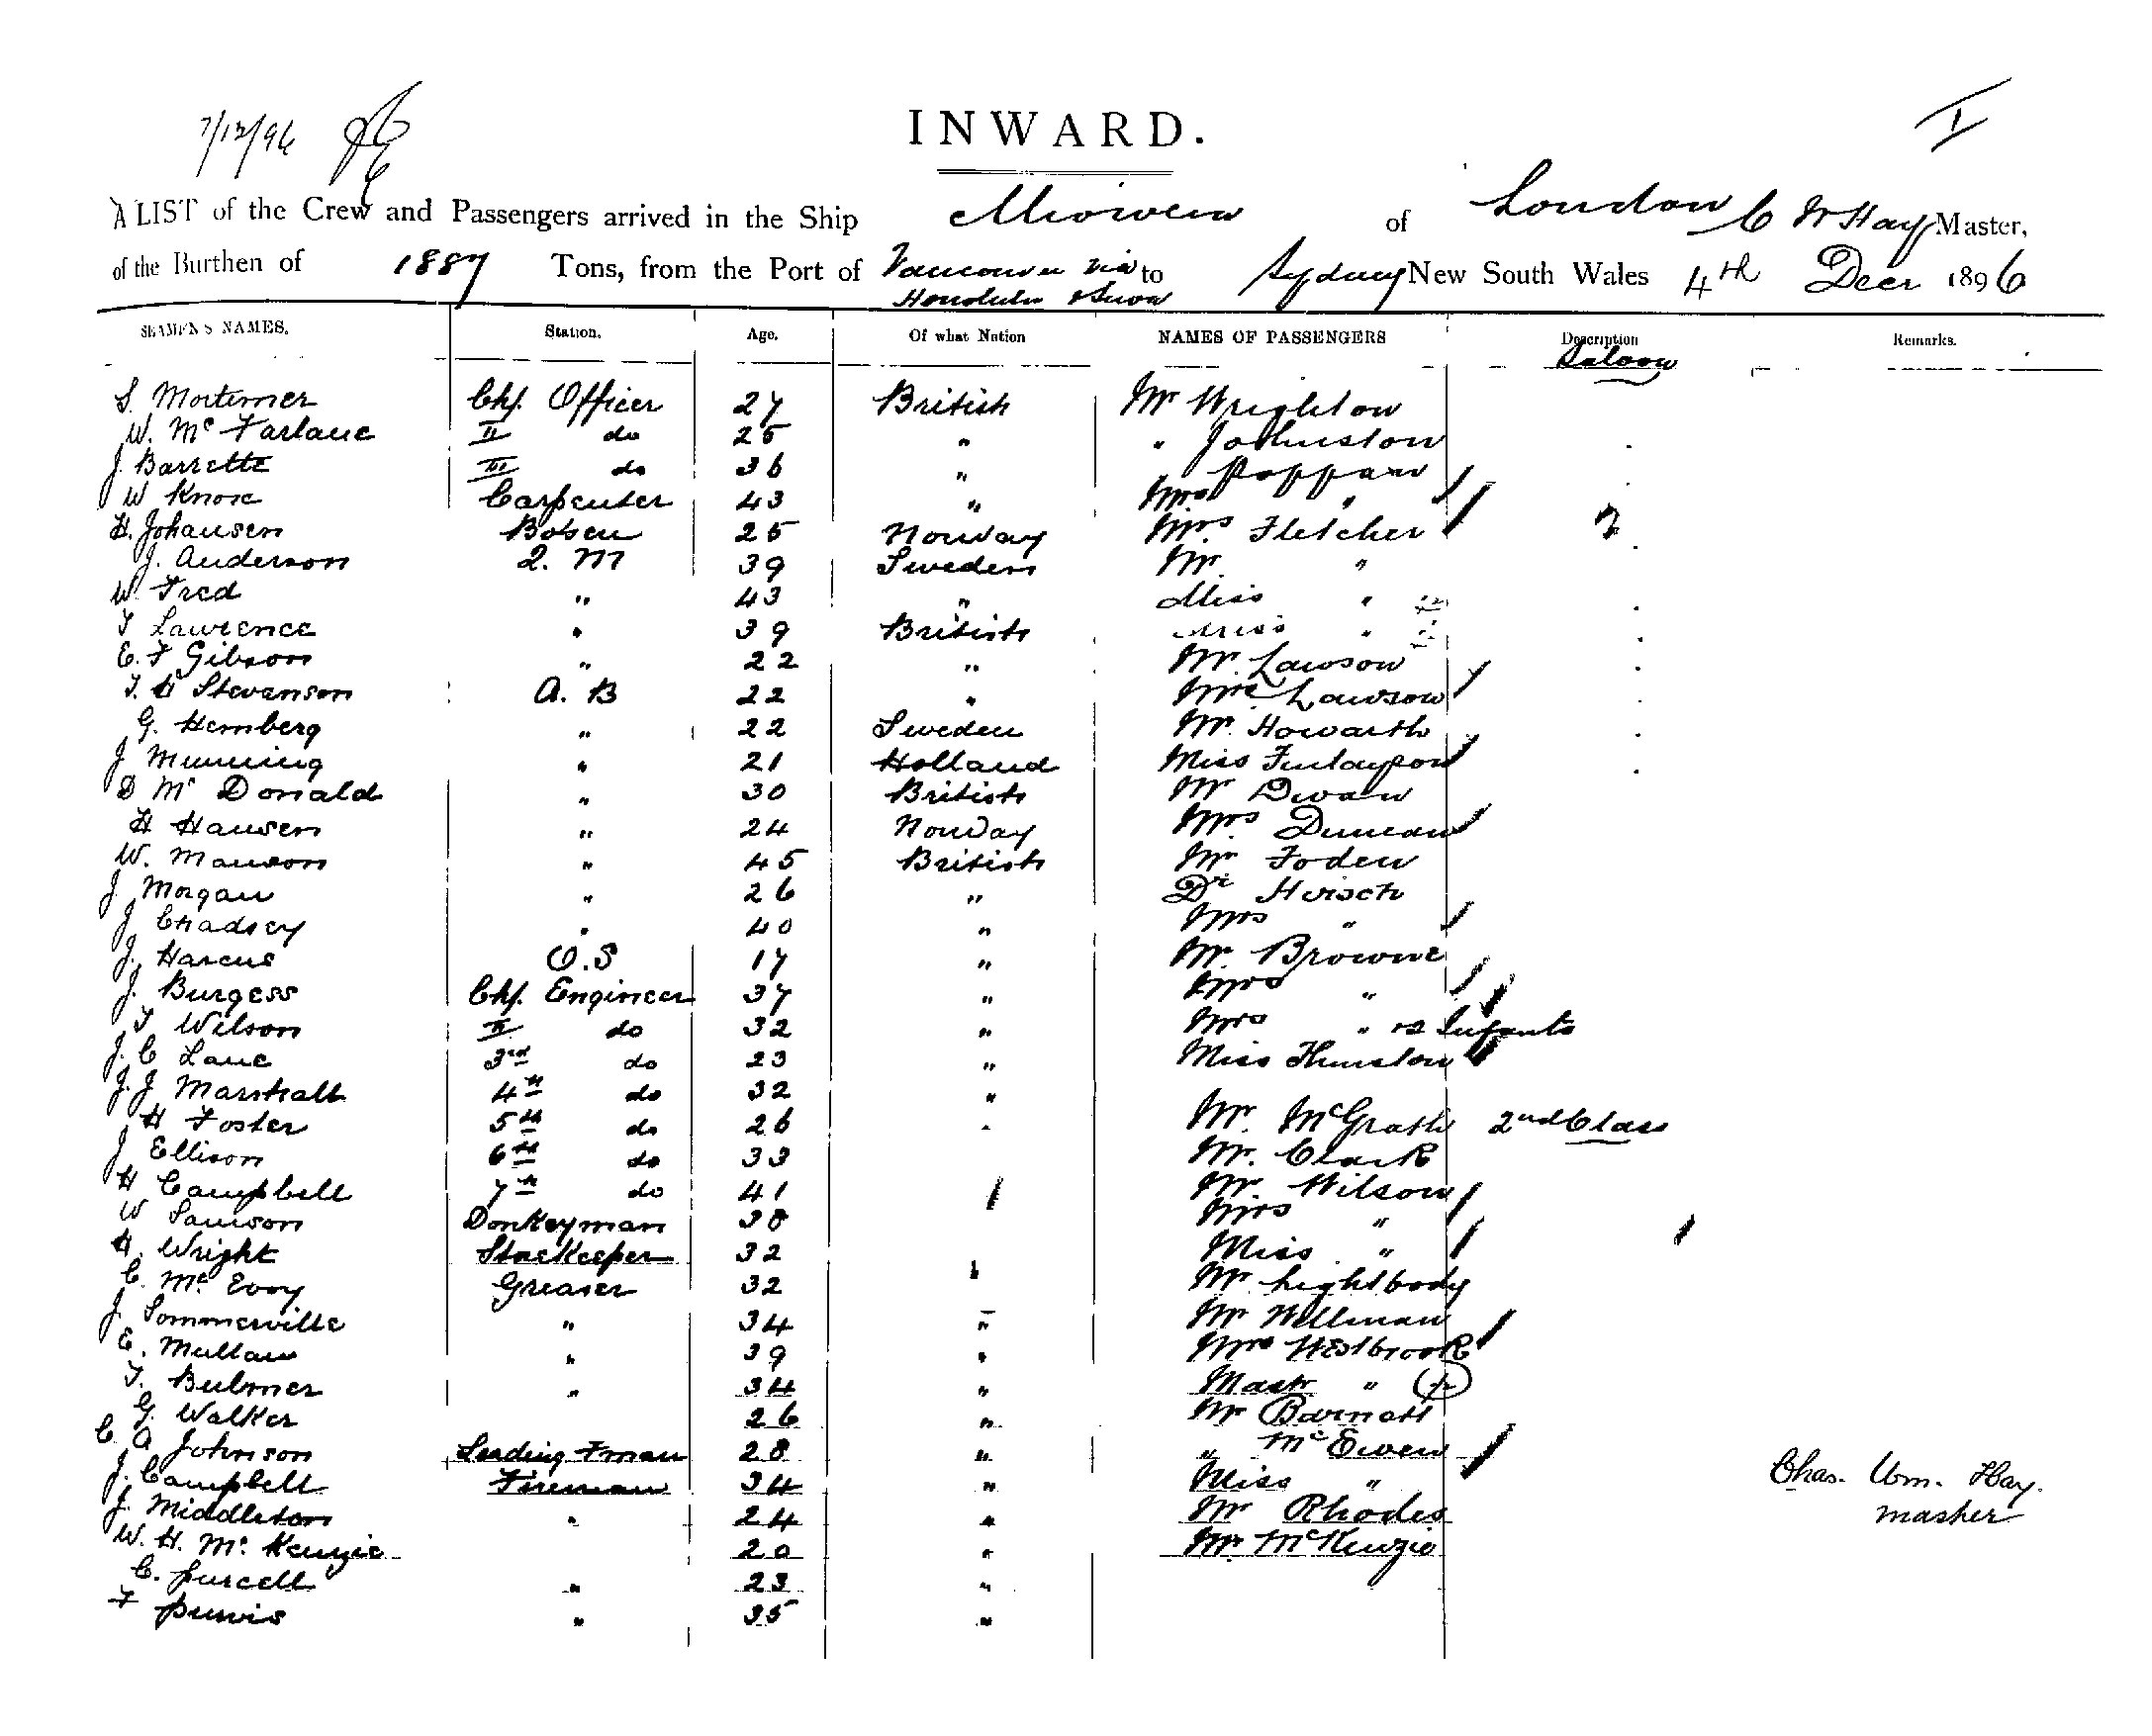 7/12/96
I
INWARD.
A LIST of the Crew and Passengers arrived in the Ship Miowera of London C W Hay Master,
of the Burthen of 1887 Tons, from the Port of Vancouver via Honolulu & Suva to Sydney New South Wales 4th Decr 1896
SEAMEN'S NAMES. Station. Age. Of what Nation NAMES OF PASSENGERS Description Remarks.
Saloon
S. Mortimer Chf. Officer 27 British Mr Wrighton
W. Mc Farlane II do 25 " " Johnston
J. Barrette III do 36 " " Poppan
W Knox Carpenter 43 " Mrs "
H. Johansen Bosen 25 Norway Mrs Fletcher
J. Anderson Q. M 39 Sweden Mr. "
W. Fred " 43 " Miss "
T Lawrence " 39 British Miss "
E. F Gibson " 22 " Mr. Lawson
T. H Stevanson A. B 22 " Mrs Lawson
G. Hemberg " 22 Sweden Mr. Howarth
J Munning " 21 Holland Miss Finlayson
D Mc Donald " 30 British Mr Dwan
H Hansen " 24 Norway Mrs Duncan
W. Manson " 45 British Mr Foden
J Morgan " 26 " Dr Hirsch
J Chadsey " 40 " Mrs "
J. Harcus O.S 17 " Mr. Browne
J. Burgess Chf. Engineer 37 " Mrs "
T Wilson II do 32 " Mrs " Infants
J. C Lane 3rd do 23 " Miss Thurston
J. J Marshall 4th do 32 "
H Foster 5th do 26 " Mr. McGrath 2nd Class
J Ellison 6th do 33 Mr. Clark
H Campbell 7th do 41 Mr Wilson
W Samson Donkeyman 38 Mrs "
H. Wright Storekeeper 32 Miss "
C. Mc Evoy Greaser 32 Mr Lightbody
J. Sommerville " 34 " Mr Wellman
E. Mullan " 39 " Mrs Westbrook
T. Bulmer " 34 " Mastr "
G. Walker 26 " Mr Barnatt
C. A Johnson Leading Fman 28 " " McEwen
J. Campbell Fireman 34 " Miss "
J. Middleton " 24 " Mr Rhodes
W. H. Mc Kenzie 20 " Mr McKenzie
C. Purcell " 23 "
F Purvis " 35 "
Chas. Wm. Hay.
Master